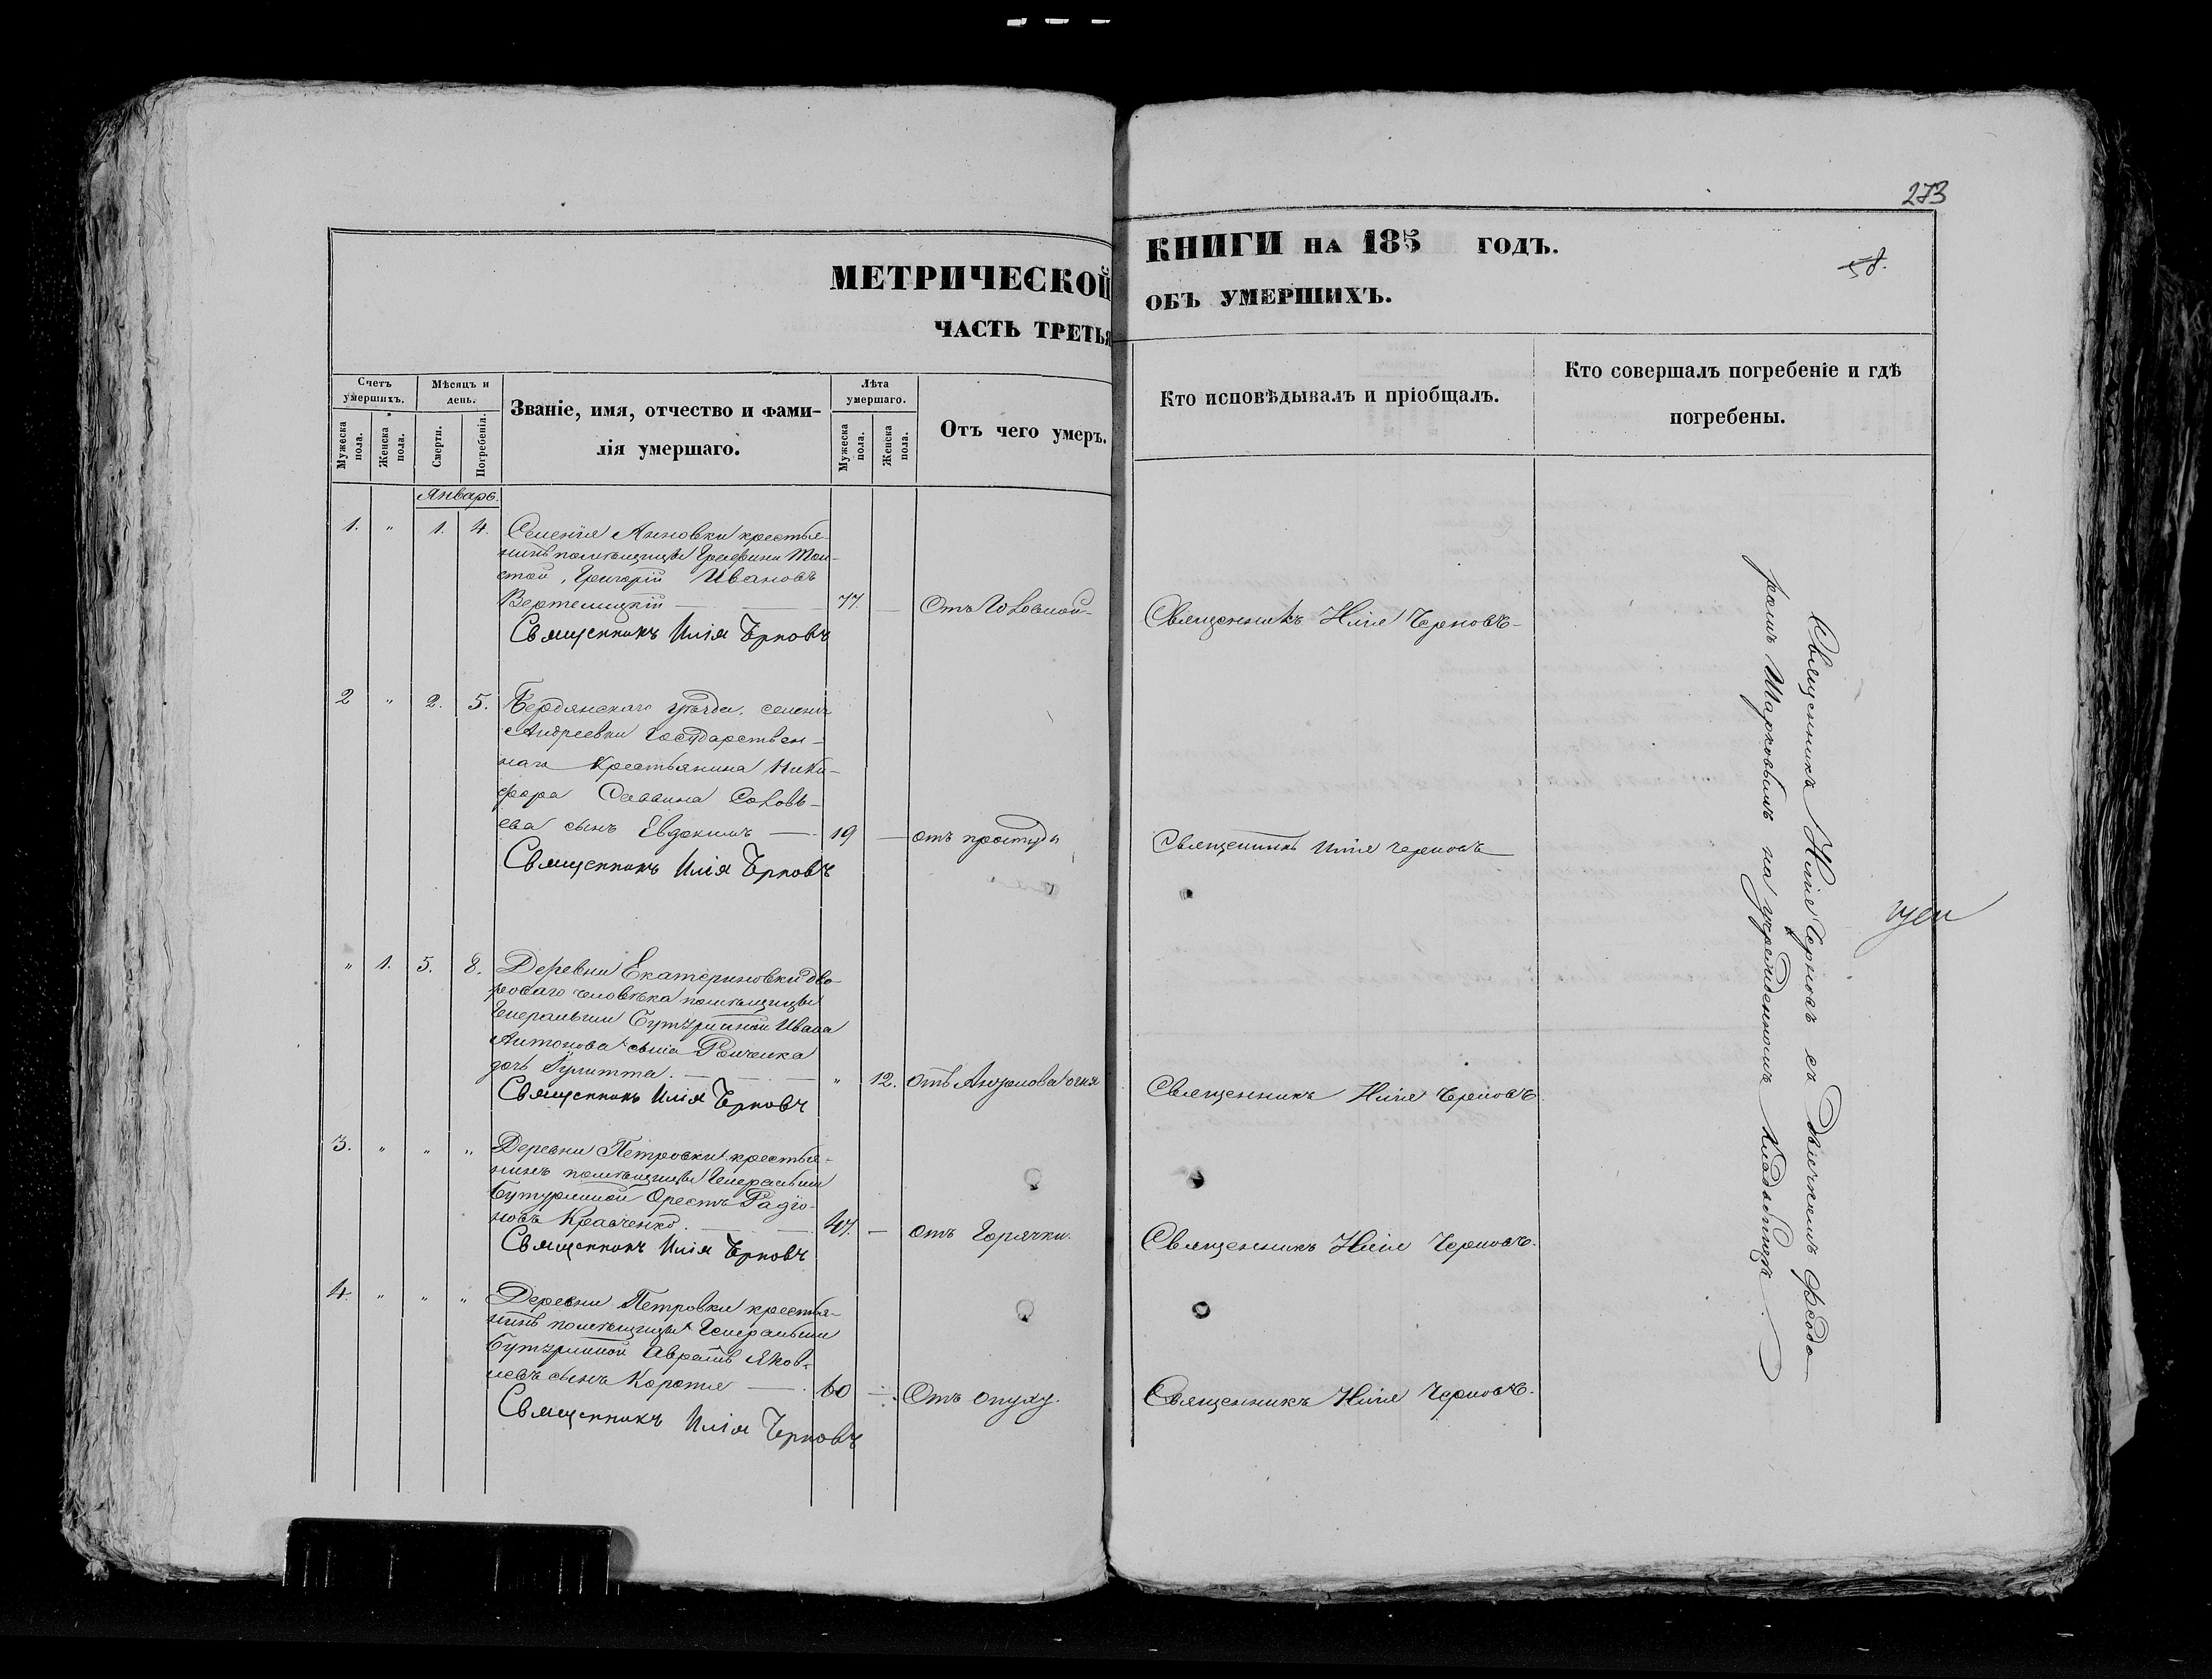 273
МЕТРИЧЕСКОЙ КНИГИ НА 185 ГОДЪ.
58.
ЧАСТЬ ТРЕТЬЯ ОБЪ УМЕРШИХЪ.
Счетъ умершихъ.
Мужеска пола.
Женска пола.
Мѣсяцъ и день.
Смерти.
Погребенія.
Званіе, имя, отчество и фами-
лія умершаго.
Лѣта умершаго.
Мужеска пола.
Женска пола.
Отъ чего умеръ.
Кто исповѣдывалъ и пріобщалъ.
Кто совершалъ погребеніе и гдѣ
погребены.
Январь.
1. " 1. 4. Селенія Анновки крестья-
нинъ помѣщицы Графини Тол-
стой, Григорій Ивановъ
77. — Отъ Головной
Священникъ Илія Черновъ
Священникъ Илія Черновъ
2 " 2. 5. Бердянскаго уѣзда, селенія
Андреевки Государствен-
наго Крестьянина Ники-
фора Саввина Соловь-
ева сынъ Евдокимъ — 19 — отъ простуды
Священникъ Илія Черновъ
Священникъ Илія Черновъ
" 1. 5. 8. Деревни Екатериновки дво-
роваго человѣка помѣщицы
Генеральши Бутурлиной Ивана
Антонова сына
дочь Іулитта. " 12. отъ Антонова огня
Священникъ Илія Черновъ
Священникъ Илія Черновъ
3. " " " Деревни Петровки крестья-
нинъ помѣщицы Генеральши
Бутурлиной Орестъ Радіо-
новъ Кравченко. 47. — отъ Горячки.
Священникъ Илія Черновъ
Священникъ Илія Черновъ.
4. " " " Деревни Петровки крестья-
нинъ помѣщицы Генеральши
Бутурлиной Авраамъ Яков-
левъ сынъ — 60 — Отъ опуху.
Священникъ Илія Черновъ
Священникъ Илія Черновъ.
Священникъ Илія Черновъ съ Дьячкомъ Федо-
ромъ Шарковымъ на учрежденномъ Кладбищѣ.